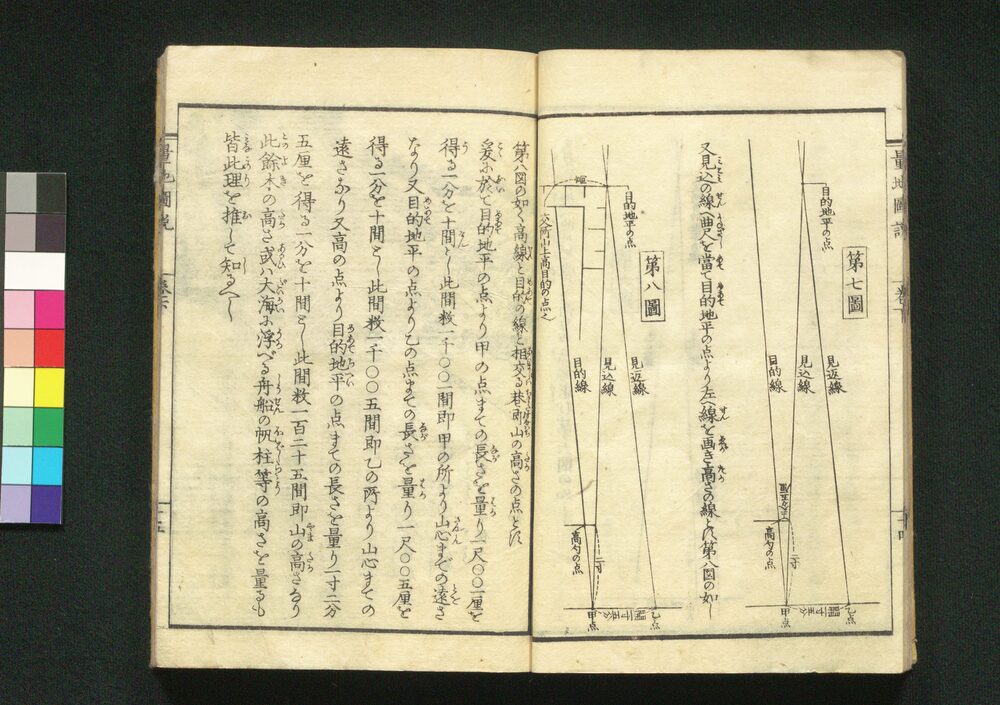 量地圖説
巻下
十四
第七圖
目的地平の点
見返線
見込線
目的線
高勾の点
一寸
乙点
甲点
又見込の線へ曲尺を當て目的地平の点より左へ線を画き高さの線とす第八図の如し
第八圖
目的地平の点
見返線
見込線
目的線
交所山上高目的の点也
高勾の点
一寸
乙点
甲点
第八図の如く高線と目的の線と相交る巷即山の高さの点とす
爰に於て目的地平の点より甲の点まての長さを量り一尺〇〇一厘を
得る一分を十間とし此間数一千〇〇一間即甲の所より山心までの遠さ
なり又目的地平の点より乙の点まての長さを量り一尺〇〇五厘を
得る一分を十間とし此間数一千〇〇五間即乙の所より山心まての
遠さなり又高の点より目的地平の点まての長さを量り一寸二分
五厘を得る一分を十間とし此間数一百二十五間即山の高さなり
此餘木の高さ或ハ大海に浮べる舟船の帆柱等の高さを量るも
皆此理を推して知るへし
量地圖説
巻下
十五